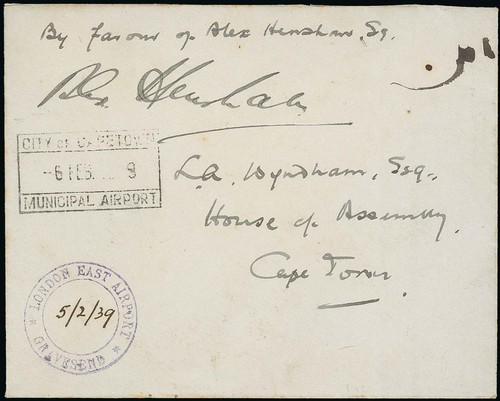 By favour of Alex Henshaw, Sq.
Alex Henshaw
CITY OF CAPETOWN
-6 FEB. 9
MUNICIPAL AIRPORT
L.A. Wyndham, Esq.,
House of Assembly,
Cape Town
LONDON EAST AIRPORT
5/2/39
* GRAVESEND *